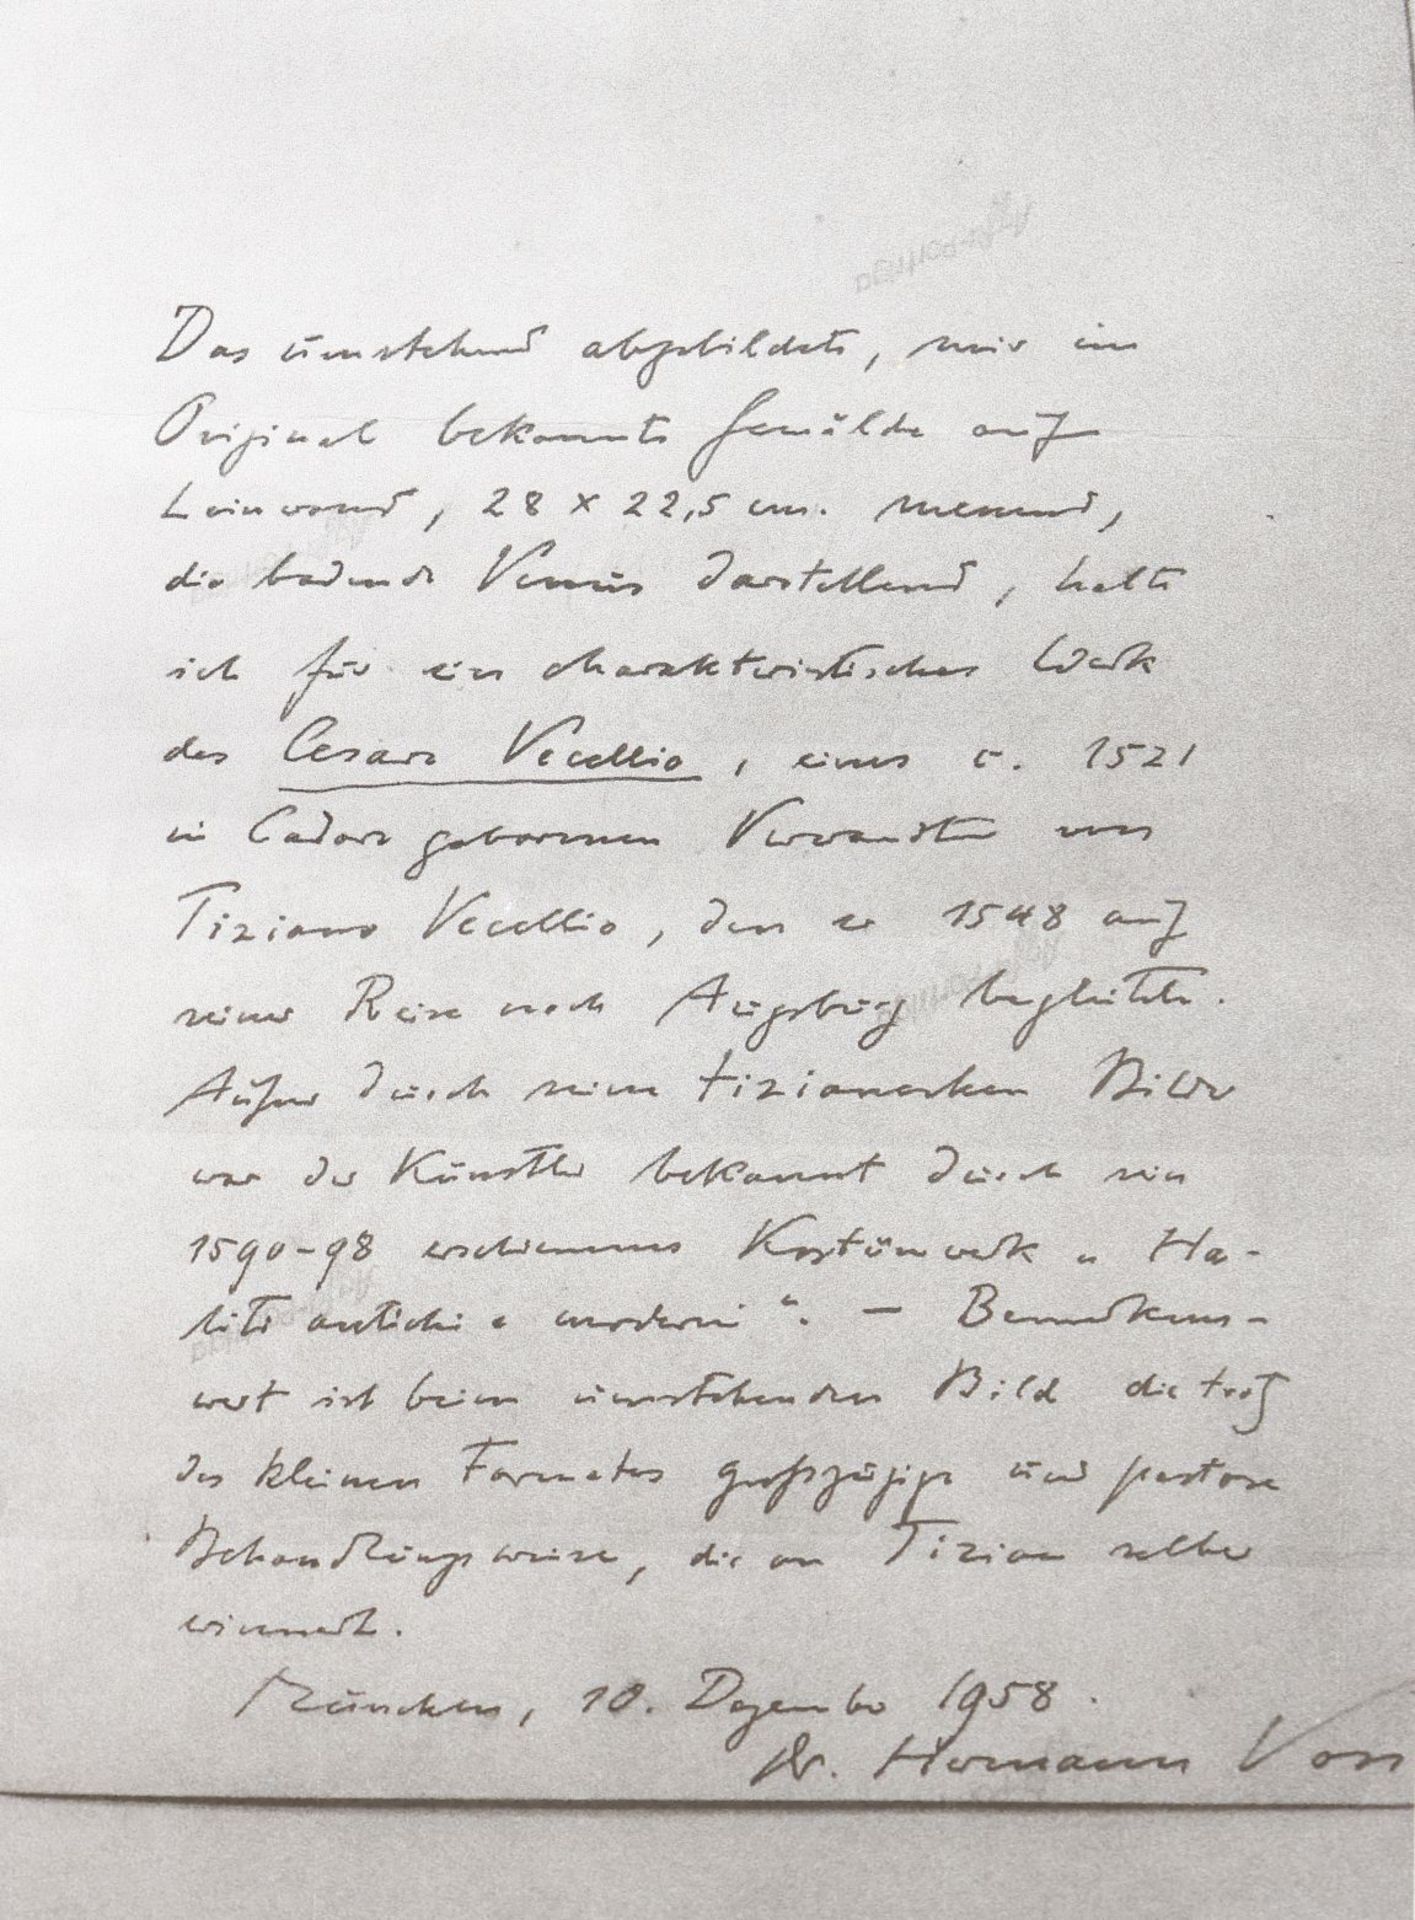 Das umstehend abgebildete, mir im
Original bekannte Gemälde auf
Leinwand, 28 x 22,5 cm. messend,
die badende Venus darstellend, halte
ich für ein charakteristisches Werk
des Cesare Vecellio, eines c. 1521
in Cadore geborenen Verwandten von
Tiziano Vecellio, den er 1548 auf
seiner Reise nach Augsburg begleitete.
Außer durch seine tizianesken Bilder
war der Künstler bekannt durch sein
1590-98 erschienenes Kostümwerk „Ha-
biti antichi e moderni“. — Bemerkens-
wert ist beim umstehenden Bild die trotz
des kleinen Formates großzügige und pastose
Behandlungsweise, die an Tizian selber
erinnert.
München, 10. Dezember 1958.
Dr. Hermann Voss